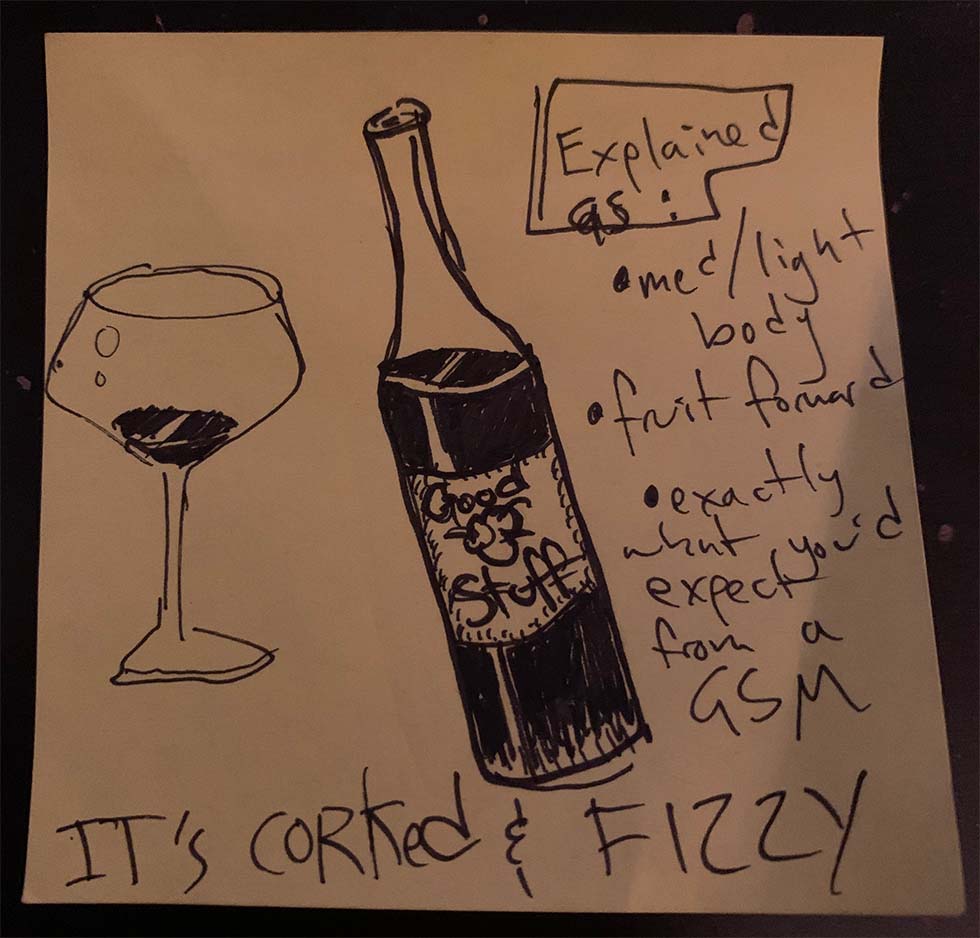 Explained
as:
• med/light
body
• fruit forward
• exactly
what you'd
expect
from a
GSM
Good
Stuff
IT's CORKed & FIZZY